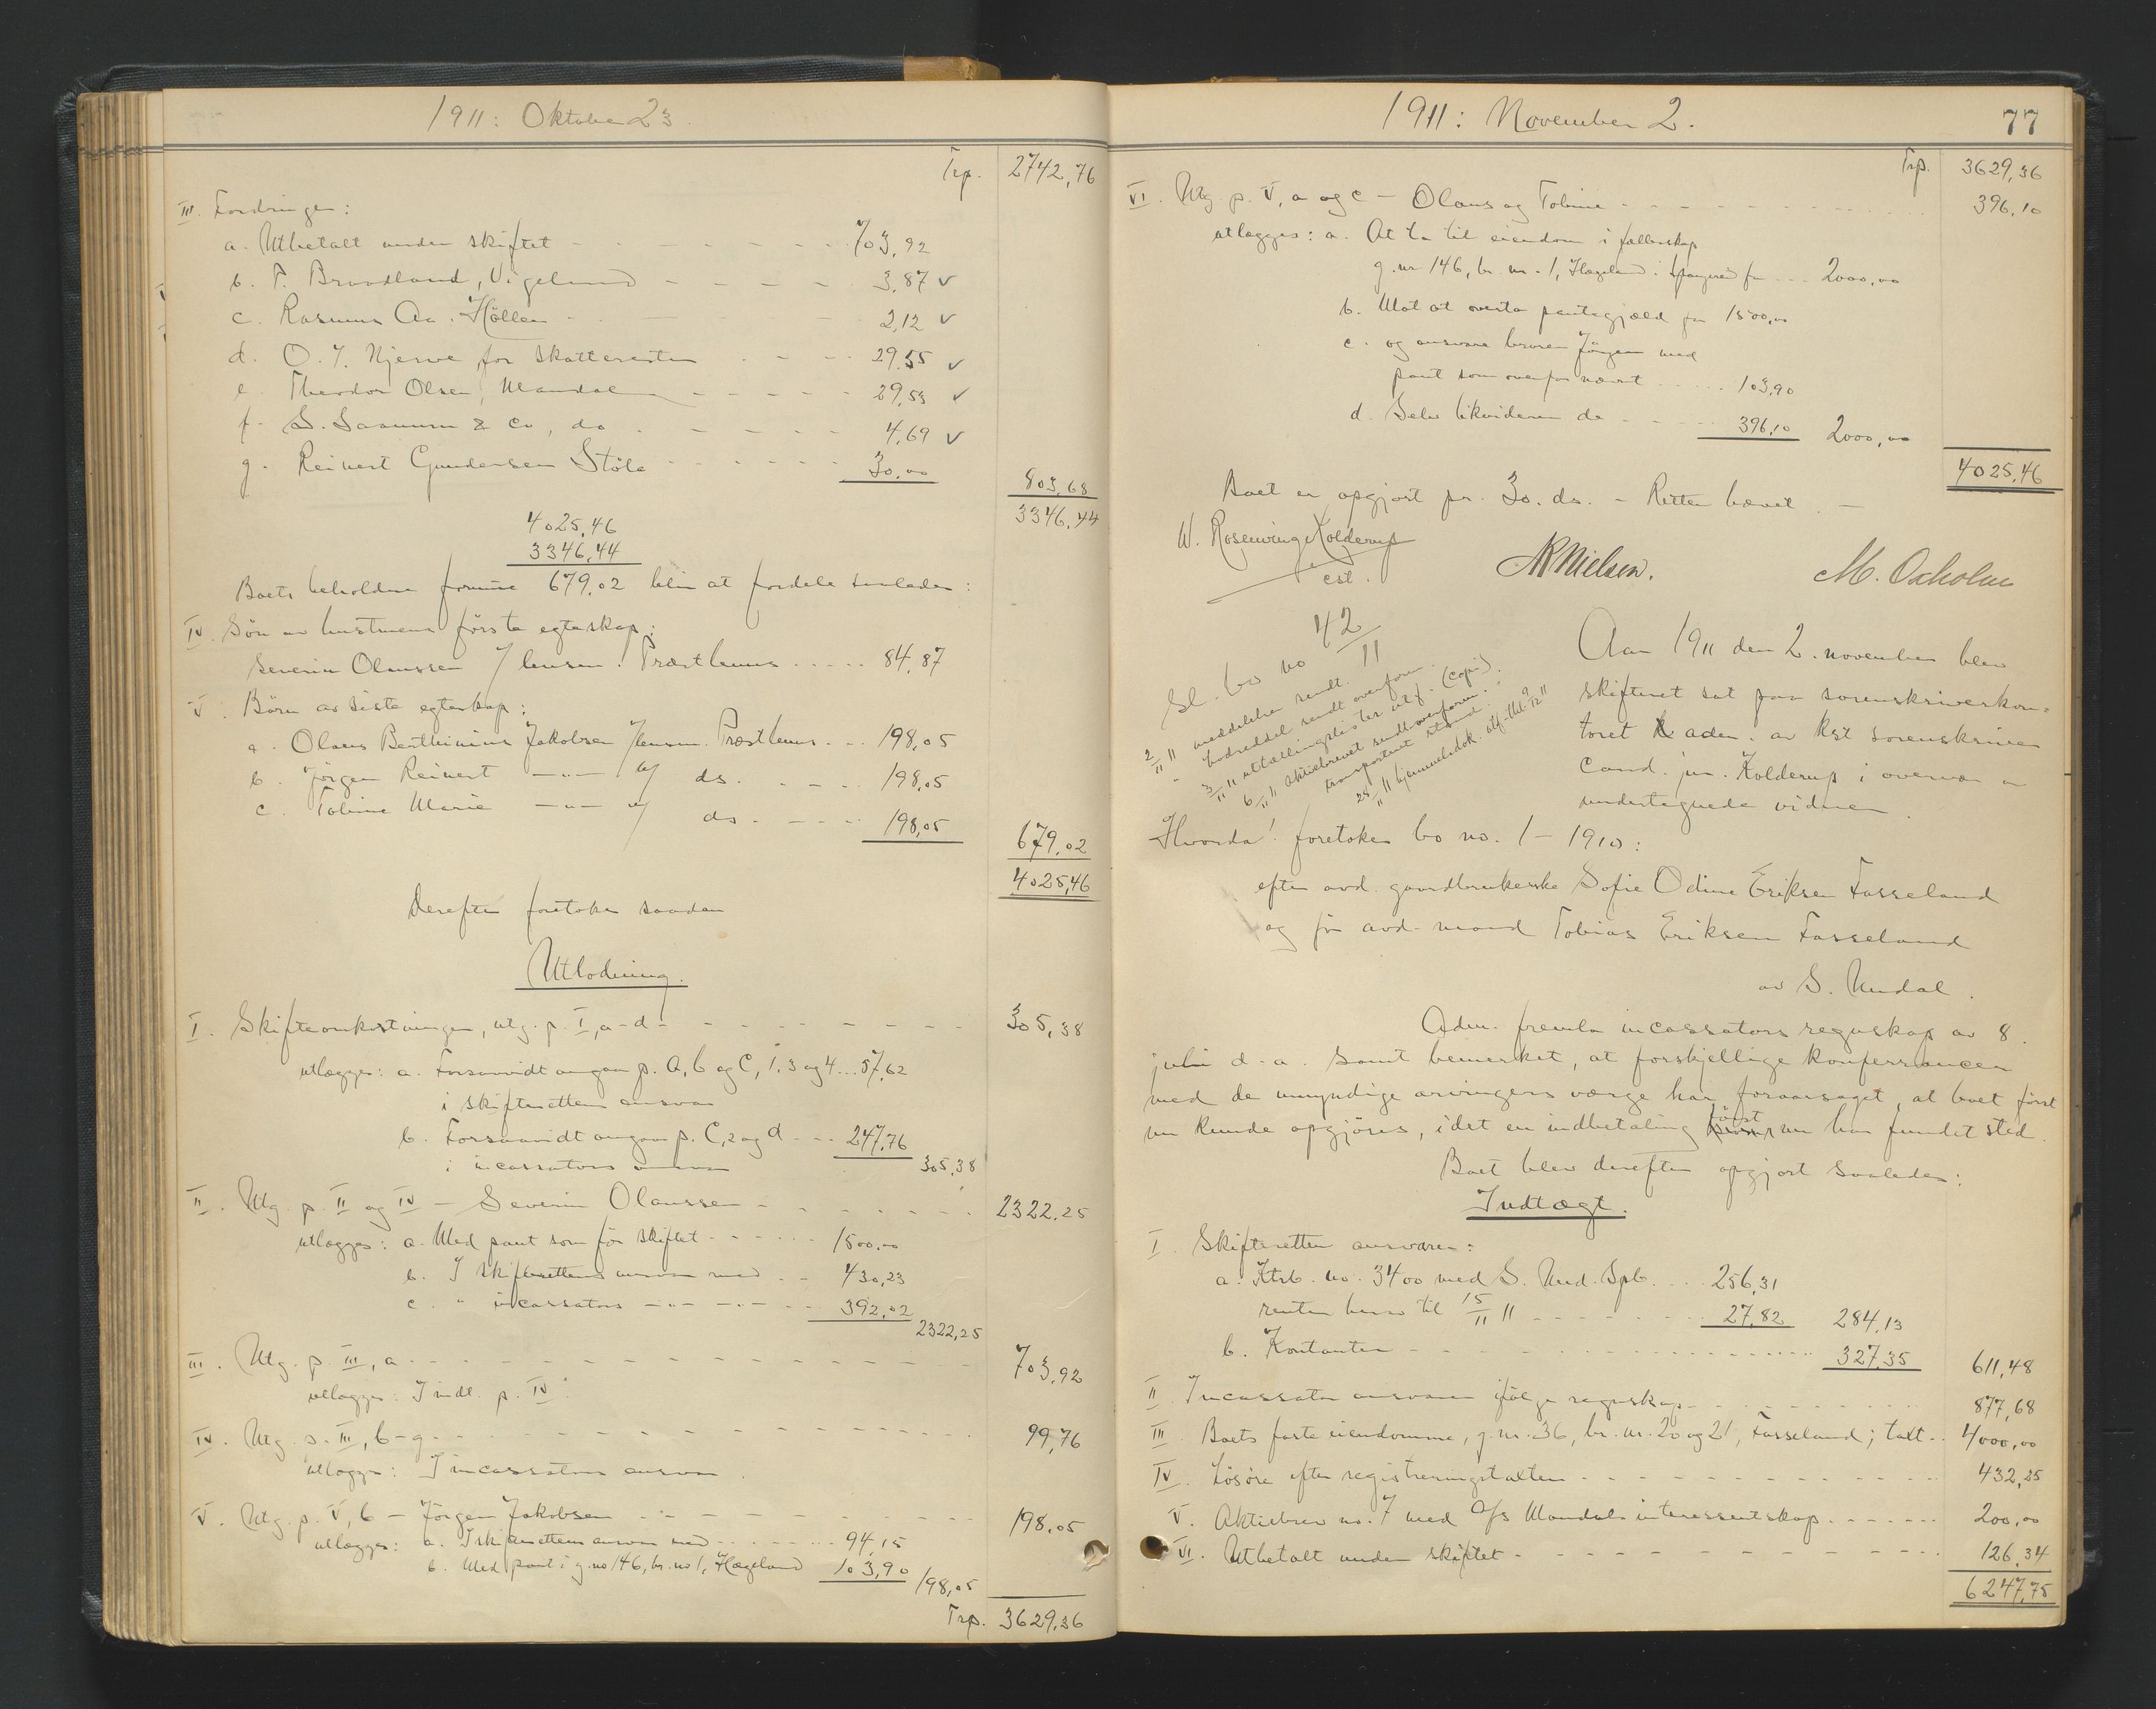 1911: Oktober 23.
Trp. 2742,76
III. Fordringer:
a. Utbetalt under skiftet - - - 703,92
b. T. Brandland, Vigeland - - - 3,87 v
c. Rasmus Aa. Höllen - - - 2,12 v
d. O. T. Njerve for skatterester - - - 29,55 v
e. Theodor Olsen, Mandal - - - 29,53 v
f. S. Saanum & Co, do - - - 4,69 v
g. Reinert Gundersen Stöle - - - 30,00 803,68
3346,44
4025,46
3346,44
Boets beholdne formue 679,02 blir at fordele saaledes:
IV. Sön av hustruens förste egteskap:
Severin Olaussen Præsthuus ..... 84,87
V. Börn av siste egteskap:
a. Olaus Berthinius Jakobsen Præsthuus ... 198,05
b. Jörgen Reinert —"— ds. - - - 198,05
c. Tobine Marie —"— ds. - - - 198,05 679,02
4025,46
Derefter foretokes saadan
Utlodning.
I. Skifteomkostninger, utg. p. I, a-d - - - 305,38
utlægges: a. Forsaavidt angaar p. a, b og c, 1, 3 og 4 ... 57,62
i skifterettens ansvar
b. Forsaavidt angaar p. C, 2 og d - - - 247,76
i incassators ansvar 305,38
II. Utg. p. II og IV — Severin Olaussen - - - 2322,25
utlægges: a. Med pant som för skiftet - - - 1500,00
b. I skifterettens ansvar med - - - 430,23
c. " incassators —"— —"— - - - 392,02
2322,25
III. Utg. p. III, a - - - 703,92
utlægges: Indt. p. IV.
IV. Utg. p. III, b-g - - - 99,76
utlægges: I incassators ansvar.
V. Utg. p. V, b — Jörgen Jakobsen - - - 198,05
utlægges: a. I skifterettens ansvar med - - - 94,15
b. Med pant i g. no 146, br. no 1, Hægeland 103,90 198,05
Trp. 3629,36
1911: November 2.
77
Trp. 3629,36
VI. Utg. p. V, a og c — Olaus og Tobine - - - 396,10
utlægges: a. At ta til eiendom i fællesskap
g. nr. 146, br. nr. 1, Hægeland i for ... 2000,00
b. Mot at overta pantegjæld for 1500,00
c. og ansvare broren Jörgen med
pant som ovenfor nævnt ..... 103,90
d. Selv likviderer de - - - 396,10 2000,00
4025,46
Boet er opgjort pr. 30. ds. — Retten hævet. —
W. Rosenvinge Kolderup
cst.
NNielsen.
M. Oxholm
Sl. bo no 42/11
2/11 11 meddelelse sendt.
" bodreddel sendt overform.
3/11 11 utlællingslister utf. (copi).
6/11 11 aktiebrevet sendt overform.
transportert stand.
28/11 11 hjemmelsdok. utf. thl. 9/12 11
Aar 1911 den 2. november blev
skifteret sat paa sorenskriverkon-
toret aden. av kst sorenskriver
cand. jur. Kolderup i overvær av
undertegnede vidner.
Hvorda! foretokes bo no. 1 — 1910:
efter avd. gaardbrukerske Sofie Odine Eriksen Fasseland
og för avd. mand Tobias Eriksen Fasseland
av S. Undal.
Adm. fremla incassators regnskap av 8.
juli d. a. samt bemerket, at forskjellige konferrancer
med de umyndige arvingers værge har foraarsaget, at boet först
nu kunde opgjöres, idet en indbetaling först nu har fundet sted.
Boet blev derefter opgjort saaledes:
Indtægt.
I. Skifteretten ansvarer:
a. Ktrb. no. 3400 med S. Und. Spb. ... 256,31
renter herav til 15/11 11 - - - 27,82 284,13
b. Kontanter - - - 327,35 611,48
II. Incassator ansvarer ifölge regnskap - - - 877,68
III. Boets faste eiendomme, g. nr. 36, br. nr. 20 og 21, Fasseland; takt .. 4000,00
IV. Lösöre efter registreringstaksten - - - 432,25
V. Aktiebrev no. 7 med A/s Mandals interessentskap - - - 200,00
VI. Utbetalt under skiftet - - - 126,34
6247,75